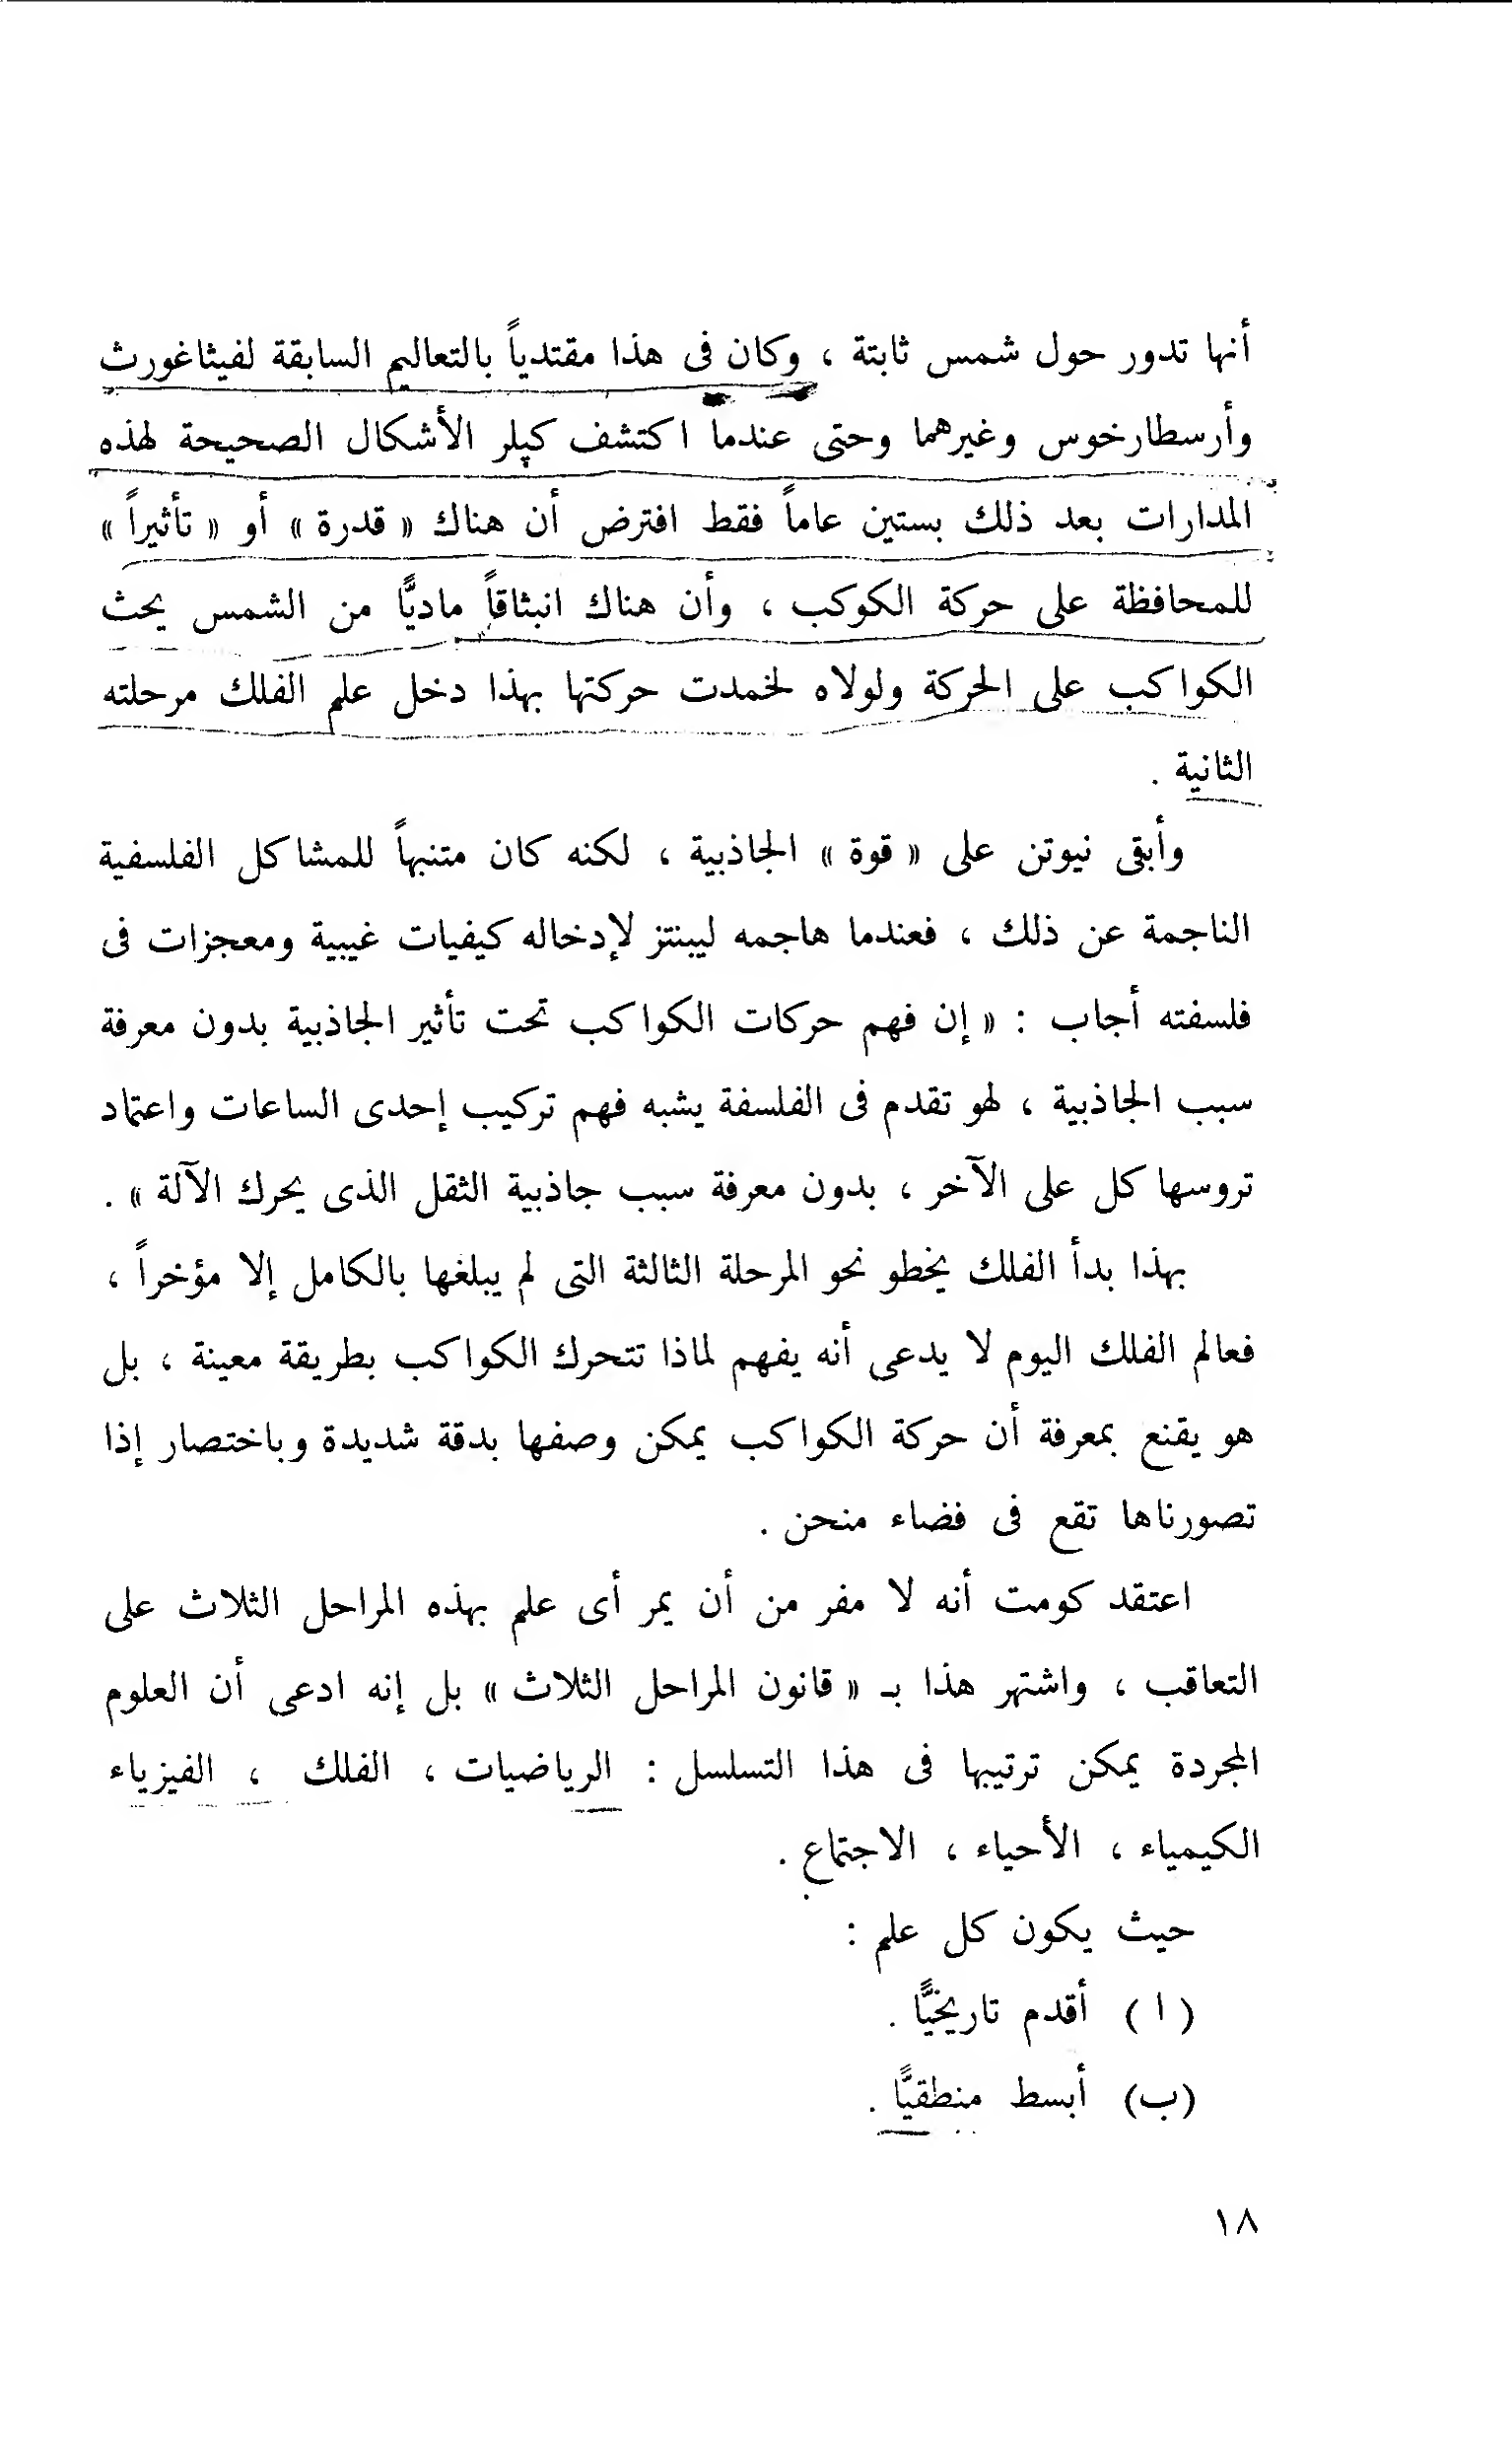 أنها تدور حول شمس ثابتة ، وكان فى هذا مقتدياً بالتعاليم السابقة لفيثاغورث
وأرسطارخوس وغيرهما وحتى عندما اكتشف كپلر الأشكال الصحيحة لهذه
المدارات بعد ذلك بستين عاماً فقط افترض أن هناك « قدرة » أو « تأثيراً »
للمحافظة على حركة الكوكب ، وأن هناك انبثاقاً ماديًّا من الشمس يحث
الكواكب على الحركة ولولاه لخمدت حركتها بهذا دخل علم الفلك مرحلته
الثانية .
وأبقى نيوتن على « قوة » الجاذبية ، لكنه كان متنبهاً للمشاكل الفلسفية
الناجمة عن ذلك ، فعندما هاجمه ليبنتز لإدخاله كيفيات غيبية ومعجزات فى
فلسفته أجاب : « إن فهم حركات الكواكب تحت تأثير الجاذبية بدون معرفة
سبب الجاذبية ، لهو تقدم فى الفلسفة يشبه فهم تركيب إحدى الساعات واعتماد
تروسها كل على الآخر ، بدون معرفة سبب جاذبية الثقل الذى يحرك الآلة » .
بهذا بدأ الفلك يخطو نحو المرحلة الثالثة التى لم يبلغها بالكامل إلا مؤخراً ،
فعالم الفلك اليوم لا يدعى أنه يفهم لماذا تتحرك الكواكب بطريقة معينة ، بل
هو يقنع بمعرفة أن حركة الكواكب يمكن وصفها بدقة شديدة وباختصار إذا
تصورناها تقع فى فضاء منحن .
اعتقد كومت أنه لا مفر من أن يمر أى علم بهذه المراحل الثلاث على
التعاقب ، واشتهر هذا بـ « قانون المراحل الثلاث » بل إنه ادعى أن العلوم
المجردة يمكن ترتيبها فى هذا التسلسل : الرياضيات ، الفلك ، الفيزياء
الكيمياء ، الأحياء ، الاجتماع .
حيث يكون كل علم :
( ا ) أقدم تاريخيًّا .
(ب) أبسط منطقيًّا .
١٨